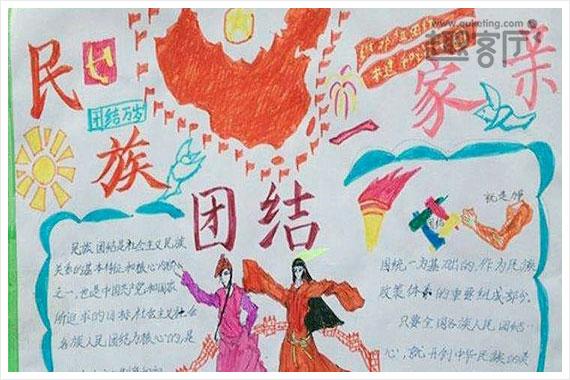 www.quketing.com
趣客厅
民族
团结
一家亲
团结万岁
就是
民族团结是社会主义民族
关系的基本特征和核心
之一,也是中国共产党和国家
所追求的目标社会主义社会
各族人民团结为核心的,是
固统一为基础的,作为民族
政策体系的重要组成部分.
只要全国各族人民团结一
心,就开创中华民族的